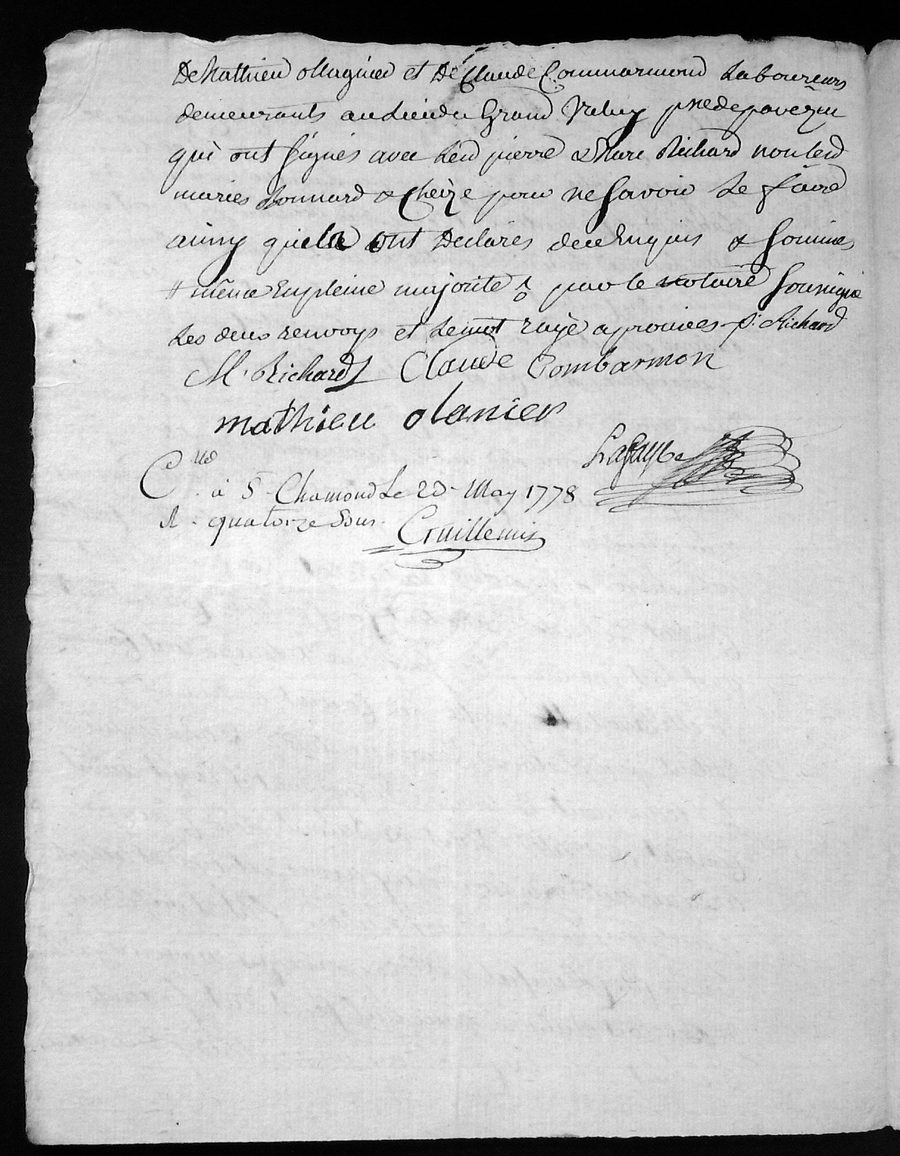 De Mathieu ollagnier et De Claude Commarmond Laboureurs
demeurants au Lieu du Grand Vrelay psse de pavezin
qui ont signés avec led pierre & Marc Richard non led
maries Bonnard & Cheize pour ne savoir Le faire
ainsy quil ont Declarés de ce Enquis & sommes
# même En pleine majorité par le notaire soussigné
Les deux renvoys et Le mot rayé aprouvés P. Richard
M. Richard Claude Combarmon
mathieu olanier
Lafay
C. lle
à St Chamond Le May 1778
R. quatorze sous